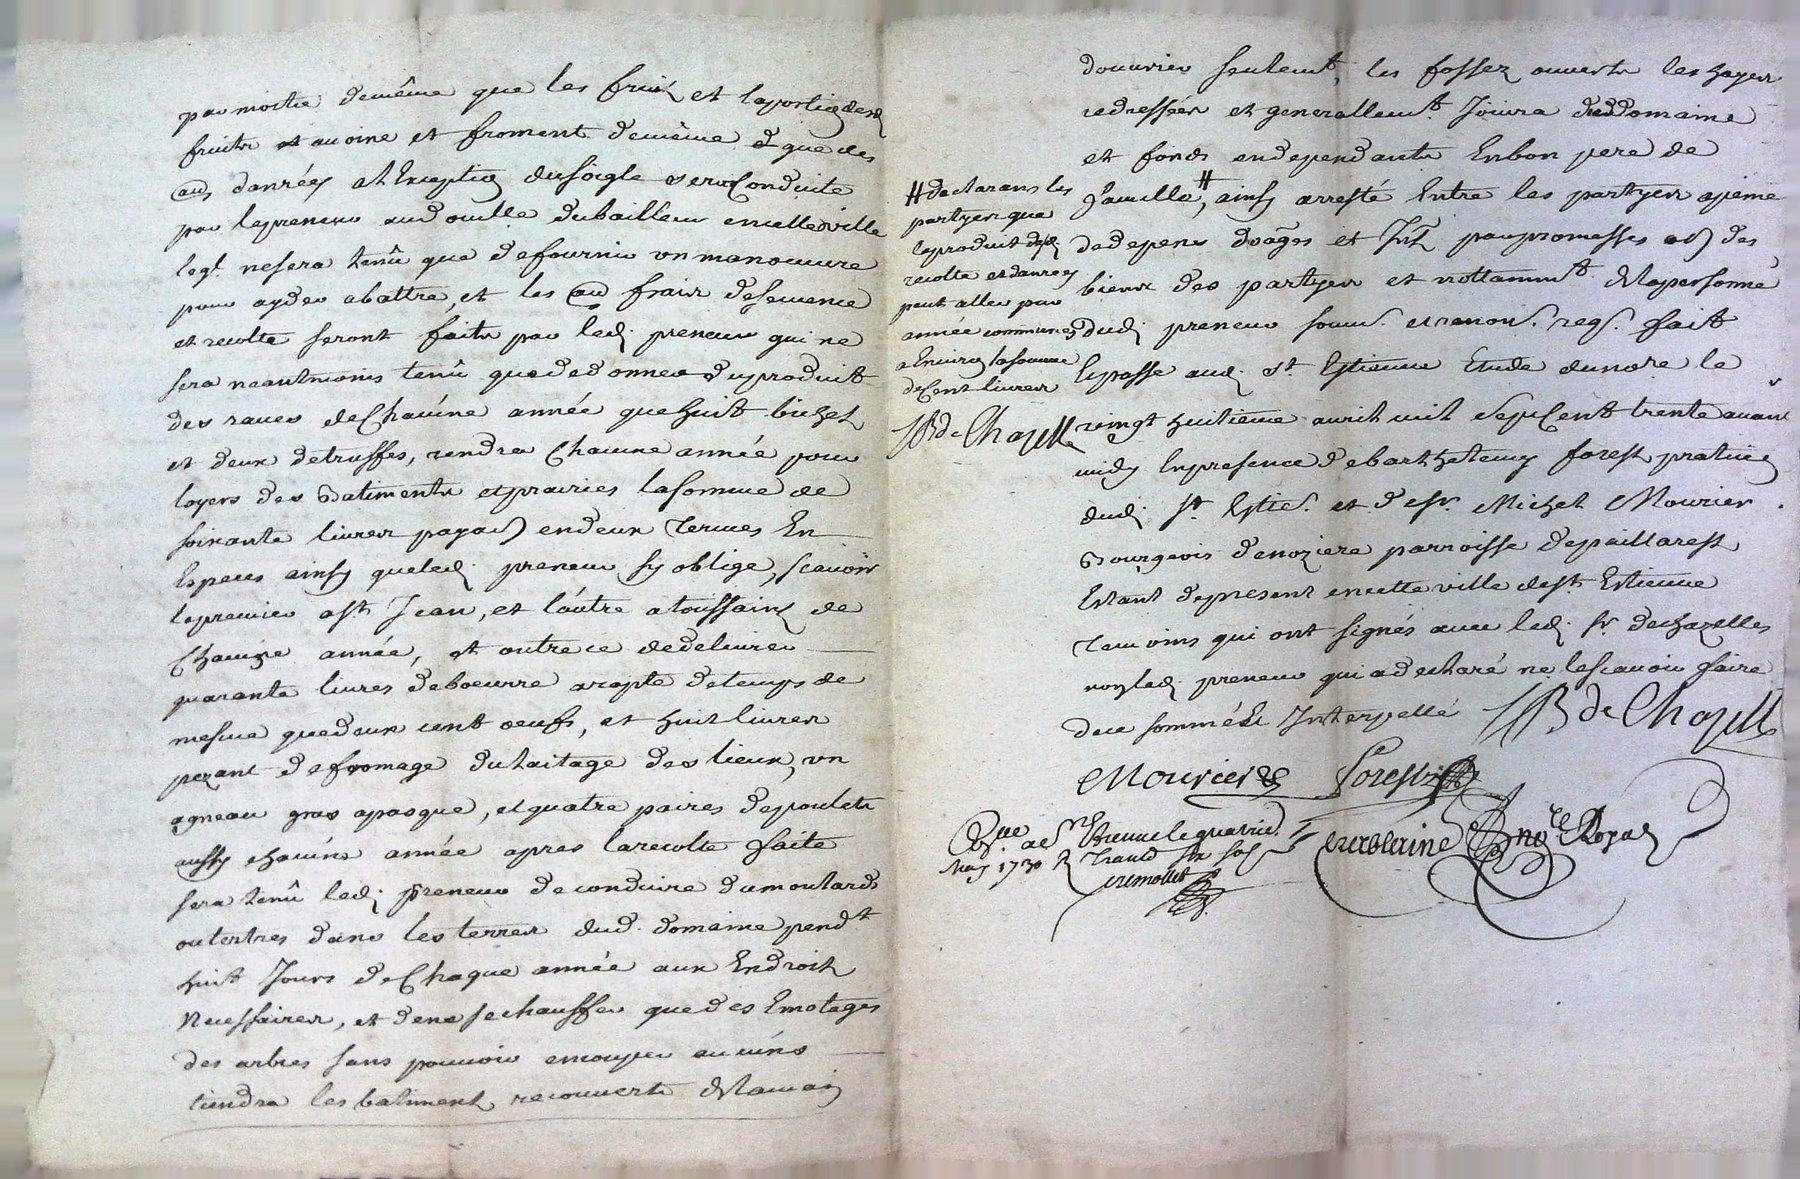 par moitie demême que les fruits et laportion desd
fruits et avoine et froment demême que des
aud danrées al Exception dusoigle sera Conduite
par lepreneur audomille dubailleur encette ville
leql. nesera tenû que defournir un manoeuvre
pour ayder abattre, et les aud frais desemence
et recolte seront faits par led. preneur qui ne
sera neantmoins tenû que de donner du produit
des raves deChacune année que huit bichets
et deux detruffes, rendra Chacune année pour
loyers des Batiments et prairies lasomme de
soixante livres payab endeux Termes En
Especes ainsy queled. preneur sy oblige, scavoir
lepremier a st Jean, et l'autre atoussaint de
Chacune année, et outre ce dedelivrer
quarante livres debeurre acompte detemps de
mesme quedeux cent oeufs, et huit livres
pezant defromage du laitage des lieux, un
agneau gras apasque, et quatre paires depoulets
aussy chacune année apres larecolte faite
sera tenû led. preneur deconduire dumoulard
ou tertres dans les terres dud. domaine pendt
huit Jours deChaque année aux Endroits
Necessaires, et dene sechauffer que des Emotages
des arbres sans pouvoir encouper aucuns
tiendra les batiments recouverts de lamain
douvrier seulemt, les fossez ouverts les hayes
redressées et generallemt. Jouira dud domaine
et fonds endependants Enbon pere de
famille, # ainsy arresté Entre les partyes apeine
dedepens doages et Intz par promesses ob des
biens des partyes et nottammt de lapersonne
dudi preneur soum. et renon. reqs. fait
Et passe aud. st. Estienne Etude dunore le
vingt huitieme avril mil septCent trente avant
midy Enpresence debarthelemy forest praticien
dud. st. Estie. et de sr. Michel Mourier
Bourgeois denoziere parroisse depaillarest
Estant depresent encette ville dest. Estienne
Temoins qui ont signés avec led. sr. dechazelles
non led. preneur qui adeclaré ne lescavoir faire
dece sommé Et Interpellé JB de Chazelle
# declarans les
partyes que
leproduit desd.
recolte et danrées
peut aller par
année communes
a Environ lasomme
deCent livres
JB de Chazelle
Mourier forest
nore Royal
le quatrie.
May 1730